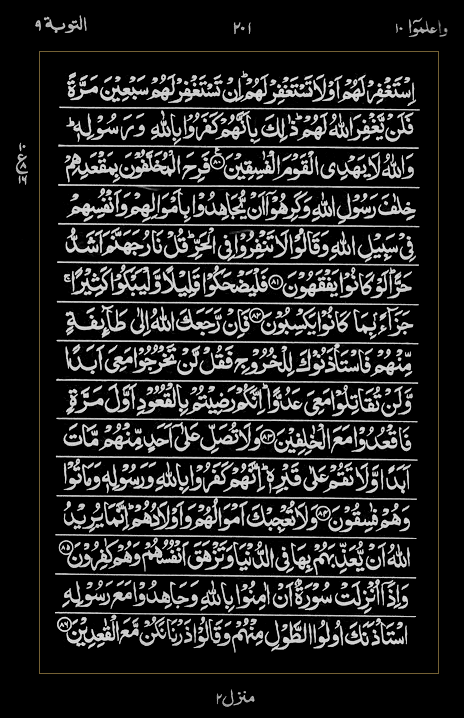 واعلموا ١٠
٢٠١
التوبة ٩
اِسْتَغْفِرْ لَهُمْ اَوْ لَا تَسْتَغْفِرْ لَهُمْ ؕ اِنْ تَسْتَغْفِرْ لَهُمْ سَبْعِیْنَ مَرَّةً
فَلَنْ یَّغْفِرَ اللّٰهُ لَهُمْ ؕ ذٰلِكَ بِاَنَّهُمْ كَفَرُوْا بِاللّٰهِ وَ رَسُوْلِهٖ ؕ
وَ اللّٰهُ لَا یَهْدِی الْقَوْمَ الْفٰسِقِیْنَ ﴿۸۰﴾ فَرِحَ الْمُخَلَّفُوْنَ بِمَقْعَدِهِمْ
خِلٰفَ رَسُوْلِ اللّٰهِ وَ كَرِهُوْۤا اَنْ یُّجَاهِدُوْا بِاَمْوَالِهِمْ وَ اَنْفُسِهِمْ
فِیْ سَبِیْلِ اللّٰهِ وَ قَالُوْا لَا تَنْفِرُوْا فِی الْحَرِّ ؕ قُلْ نَارُ جَهَنَّمَ اَشَدُّ
حَرًّا ؕ لَوْ كَانُوْا یَفْقَهُوْنَ ﴿۸۱﴾ فَلْیَضْحَكُوْا قَلِیْلًا وَّ لْیَبْكُوْا كَثِیْرًا ۚ
جَزَآءًۢ بِمَا كَانُوْا یَكْسِبُوْنَ ﴿۸۲﴾ فَاِنْ رَّجَعَكَ اللّٰهُ اِلٰی طَآىِٕفَةٍ
مِّنْهُمْ فَاسْتَاْذَنُوْكَ لِلْخُرُوْجِ فَقُلْ لَّنْ تَخْرُجُوْا مَعِیَ اَبَدًا
وَّ لَنْ تُقَاتِلُوْا مَعِیَ عَدُوًّا ؕ اِنَّكُمْ رَضِیْتُمْ بِالْقُعُوْدِ اَوَّلَ مَرَّةٍ
فَاقْعُدُوْا مَعَ الْخٰلِفِیْنَ ﴿۸۳﴾ وَ لَا تُصَلِّ عَلٰۤی اَحَدٍ مِّنْهُمْ مَّاتَ
اَبَدًا وَّ لَا تَقُمْ عَلٰی قَبْرِهٖ ؕ اِنَّهُمْ كَفَرُوْا بِاللّٰهِ وَ رَسُوْلِهٖ وَ مَاتُوْا
وَ هُمْ فٰسِقُوْنَ ﴿۸۴﴾ وَ لَا تُعْجِبْكَ اَمْوَالُهُمْ وَ اَوْلَادُهُمْ ؕ اِنَّمَا یُرِیْدُ
اللّٰهُ اَنْ یُّعَذِّبَهُمْ بِهَا فِی الدُّنْیَا وَ تَزْهَقَ اَنْفُسُهُمْ وَ هُمْ كٰفِرُوْنَ ﴿۸۵﴾
وَ اِذَاۤ اُنْزِلَتْ سُوْرَةٌ اَنْ اٰمِنُوْا بِاللّٰهِ وَ جَاهِدُوْا مَعَ رَسُوْلِهِ
اسْتَاْذَنَكَ اُولُوا الطَّوْلِ مِنْهُمْ وَ قَالُوْا ذَرْنَا نَكُنْ مَّعَ الْقٰعِدِیْنَ ﴿۸۶﴾
١٠
ع
١٦
منزل ٢